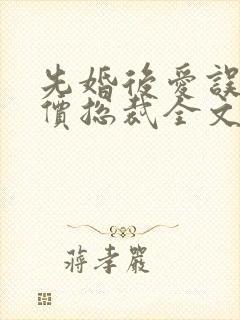 先婚後愛誤
價總裁全文
蔣孝嚴